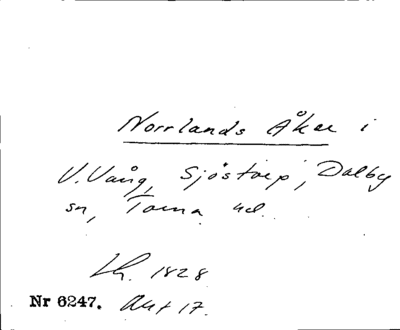 Norrlands Åker i
V. Vång, Sjöstorp, Dalby
sn, Torna hd.
Lh. 1828
Nr 6247. Akt 17.